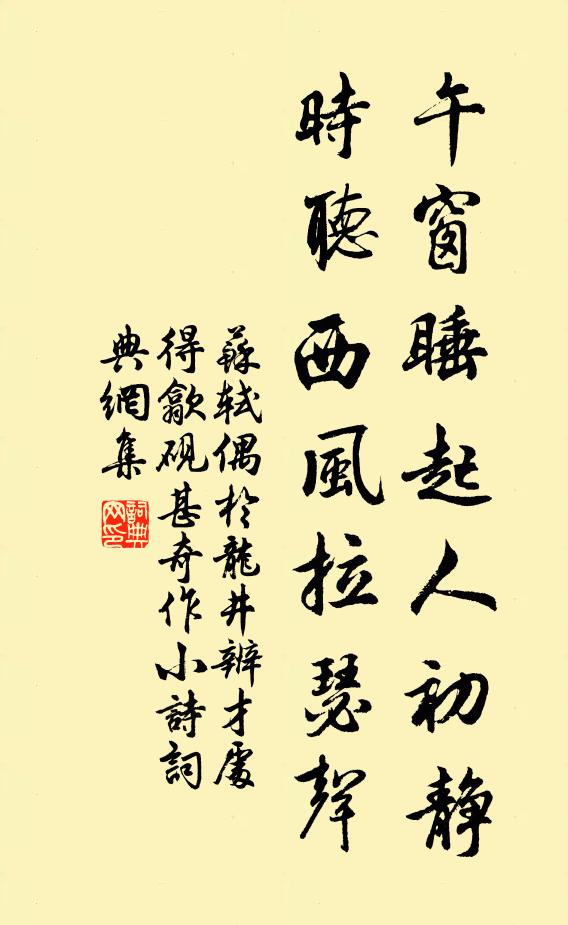 午窗睡起人初静
時聽西風拉瑟聲
蘇軾偶於龍井辨才處
得歙硯甚奇作小詩詞
典網集
詞典網印